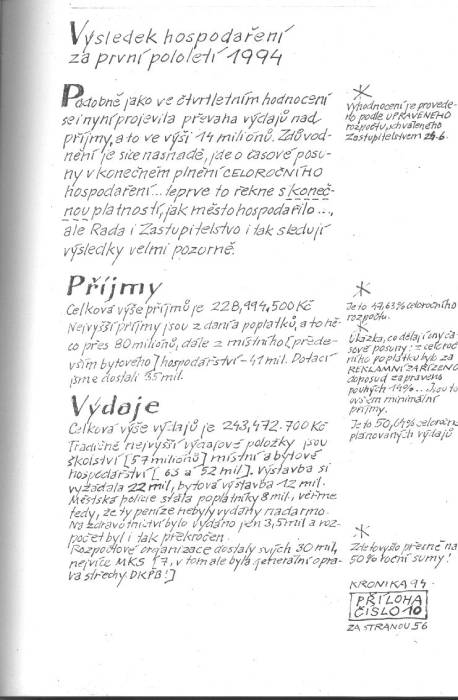 Výsledek hospodaření
za první pololetí 1994
Podobně jako ve čtvrtletním hodnocení
se i nyní projevila převaha výdajů nad
příjmy, a to ve výši 14 milionů. Zdůvod-
nění je sice nasnadě, jde o časové posu-
ny v konečném plnění CELOROČNÍHO
hospodaření... teprve to řekne s koneč-
nou platností, jak město hospodařilo...,
ale Rada i Zastupitelstvo i tak sledují
výsledky velmi pozorně.
Vyhodnocení je provede-
no podle UPRAVENÉHO
rozpočtu, schváleného
Zastupitelstvem 29.6.
Příjmy
Celková výše příjmů je 228,994.500 Kč
Nejvyšší příjmy jsou z daní a poplatků, a to ně-
co přes 80 milionů, dále z místního [přede-
vším bytového] hospodářství - 41 mil. Dotací
jsme dostali 35 mil.
Je to 47,63% celoročního
rozpočtu.
Ukázka, co dělají ony ča-
sové posuny: z celoroč-
ního poplatku bylo za
REKLAMNÍ ZAŘÍZENÍ
doposud zapraveno
pouhých 19%... Jsou to
ovšem minimální
příjmy.
Výdaje
Celková výše výdajů je 243,472.700 Kč
Tradičně nejvyšší výdajové položky jsou
školství [57 milionů] místní a bytové
hospodářství [63 a 52 mil]. Výstavba si
vyžádala 22 mil, bytová výstavba 12 mil.
Městská policie stála poplatníky 8 mil, věřme
tedy, že ty peníze nebyly vydány nadarmo.
Na zdravotnictví bylo vydáno jen 3,5 mil a roz-
počet byl i tak překročen.
Rozpočtové organizace dostaly svých 30 mil,
nejvíce MKS [7, v tom ale byla generální opra-
va střechy DKPB!]
Je to 50,64% celoročně
plánovaných výdajů
Zde to vyšlo přesně na
50% roční sumy!
KRONIKA 94 -
PŘÍLOHA
ČÍSLO 10
ZA STRANOU 56